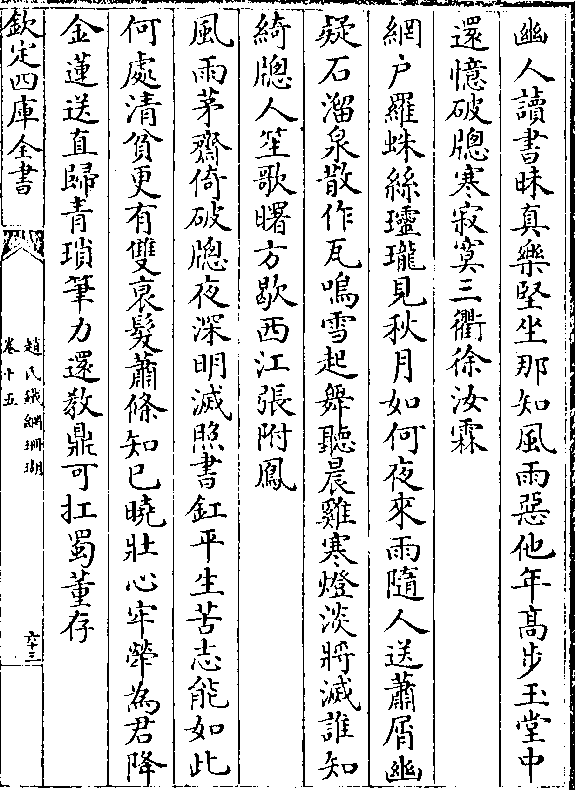 幽人讀書昧真樂堅坐那知風雨惡他年高步玉堂中
還憶破牕寒寂寞三衢徐汝霖
網户羅蛛絲瓏瓏見秋月如何夜來雨隨人送蕭屑幽
疑石溜泉散作瓦鳴雪起舞聽晨雞寒燈淡將滅誰知
綺牕人笙歌曙方歇西江張附鳳
風雨茅齋倚破牕夜深明滅照書釭平生苦志能如此
何處清貧更有雙衰髮蕭條知已曉壯心牢犖為君降
金蓮送直歸青瑣筆力還教鼎可扛蜀董存
欽定四庫全書
趙氏鐵網珊瑚
卷十五
六十三